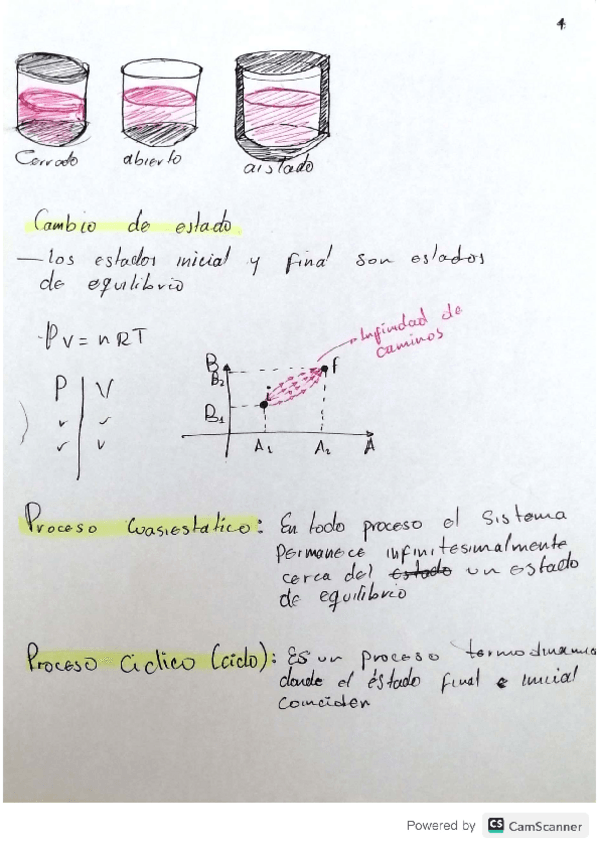 4
Cerrado abierto aislado
Cambio de estado
— los estados inicial y final son estados
de equilibrio
PV = nRT
P V
Infinidad de
caminos
B
B₂
B₁
i
f
A₁ A₂ A
Proceso Cuasiestatico: En todo proceso el sistema
permanece infinitesimalmente
cerca del estado un estado
de equilibrio
Proceso Ciclico (ciclo): Es un proceso termodinamico
donde el éstado final e inicial
coinciden
Powered by CS CamScanner